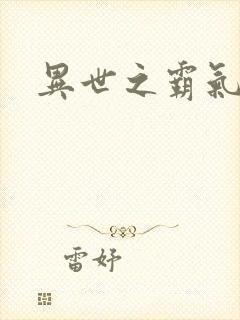 異世之霸氣
雷妤